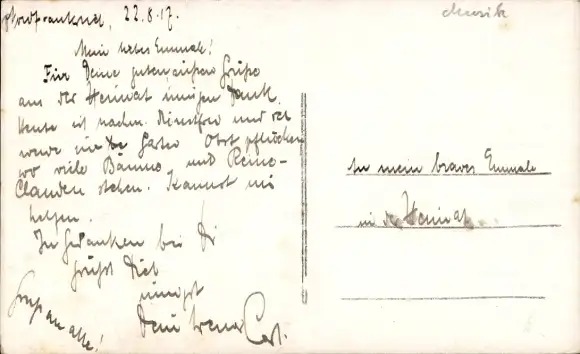 Nordfrankreich, 22.8.17.
Musik
Mein liebes Emmale!
Für Deine guten Grüße
aus der Heimat innigen Dank.
Heute ist und ich
werde im Garten Obst pflücken
wo viele Bäume und Reine-
Clauden stehen. Kannst mir
helfen.
In Gedanken bei Dir
grüßt Dich
innigst
Dein treuer Carl.
Gruß an alle!
An mein braves Emmale
in der Heimat.